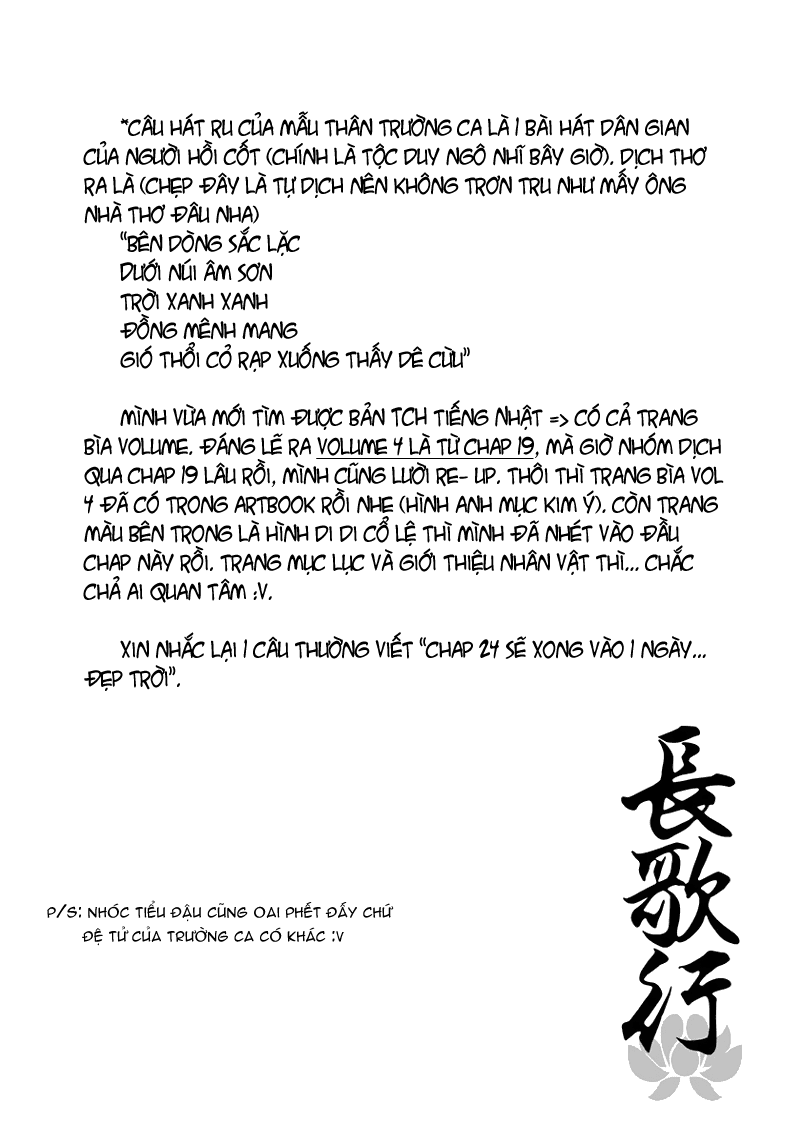 *CÂU HÁT RU CỦA MẪU THÂN TRƯỜNG CA LÀ 1 BÀI HÁT DÂN GIAN
CỦA NGƯỜI HỒI CỐT (CHÍNH LÀ TỘC DUY NGÔ NHĨ BÂY GIỜ). DỊCH THƠ
RA LÀ (CHẸP ĐÂY LÀ TỰ DỊCH NÊN KHÔNG TRƠN TRU NHƯ MẤY ÔNG
NHÀ THƠ ĐÂU NHA)
"BÊN DÒNG SẮC LẶC
DƯỚI NÚI ÂM SƠN
TRỜI XANH XANH
ĐỒNG MÊNH MANG
GIÓ THỔI CỎ RẠP XUỐNG THẤY DÊ CỪU"
MÌNH VỪA MỚI TÌM ĐƯỢC BẢN TCH TIẾNG NHẬT => CÓ CẢ TRANG
BÌA VOLUME. ĐÁNG LẼ RA VOLUME 4 LÀ TỪ CHAP 19, MÀ GIỜ NHÓM DỊCH
QUA CHAP 19 LÂU RỒI, MÌNH CŨNG LƯỜI RE- UP. THÔI THÌ TRANG BÌA VOL
4 ĐÃ CÓ TRONG ARTBOOK RỒI NHE (HÌNH ANH MỤC KIM Ý). CÒN TRANG
MÀU BÊN TRONG LÀ HÌNH DI DI CỔ LỆ THÌ MÌNH ĐÃ NHÉT VÀO ĐẦU
CHAP NÀY RỒI. TRANG MỤC LỤC VÀ GIỚI THIỆU NHÂN VẬT THÌ... CHẮC
CHẢ AI QUAN TÂM :V.
XIN NHẮC LẠI 1 CÂU THƯỜNG VIẾT "CHAP 24 SẼ XONG VÀO 1 NGÀY...
ĐẸP TRỜI".
長歌行
P/S: NHÓC TIỂU ĐẬU CŨNG OAI PHẾT ĐẤY CHỨ
ĐỆ TỬ CỦA TRƯỜNG CA CÓ KHÁC :V